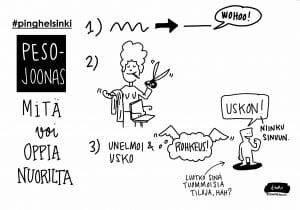 #pinghelsinki
PESO-
JOONAS
MITÄ
voi
OPPIA
NUORILTA
1)
WOHOO!
2)
3) UNELMOI &
USKO
ROHKEUS!
USKON!
NIINKU
SINUUN.
LUETKO SINÄ
TUOMMOISIA
TILOJA, HÄH?